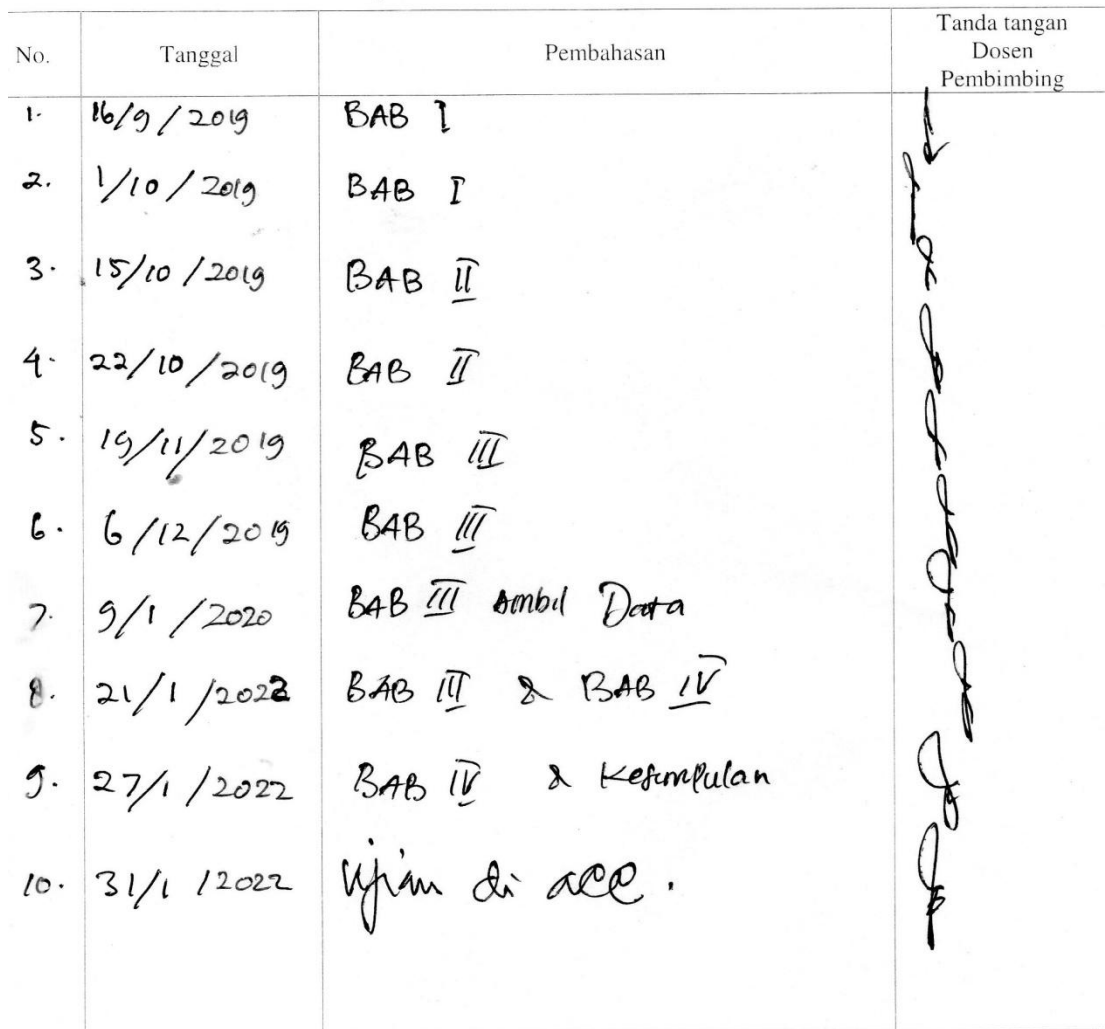 No. Tanggal Pembahasan Tanda tangan
Dosen
Pembimbing
1. 16/9/2019 BAB I
2. 1/10/2019 BAB I
3. 15/10/2019 BAB II
4. 22/10/2019 BAB II
5. 19/11/2019 BAB III
6. 6/12/2019 BAB III
7. 9/1/2020 BAB III Ambil Data
8. 21/1/2022 BAB III & BAB IV
9. 27/1/2022 BAB IV & Kesimpulan
10. 31/1/2022 Ujian di acc.